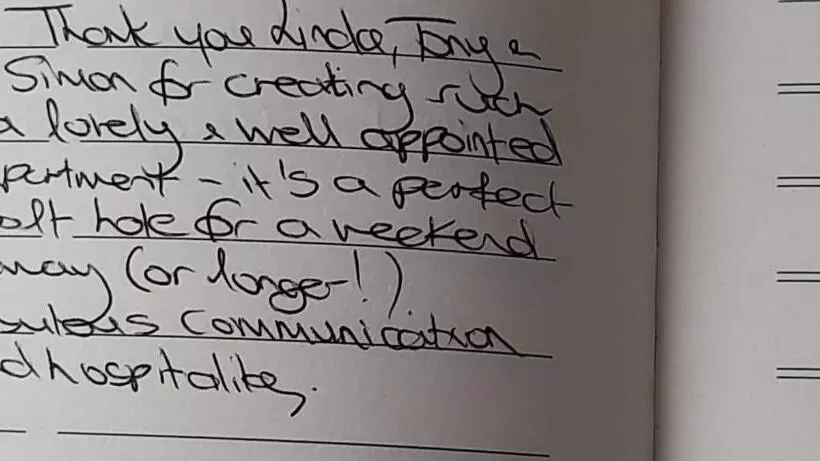 Thank you Linda, Tony &
Simon for creating such
a lovely & well appointed
partment - it's a perfect
olt hole for a weekend
way (or longer!)
ulous communication
d hospitality.